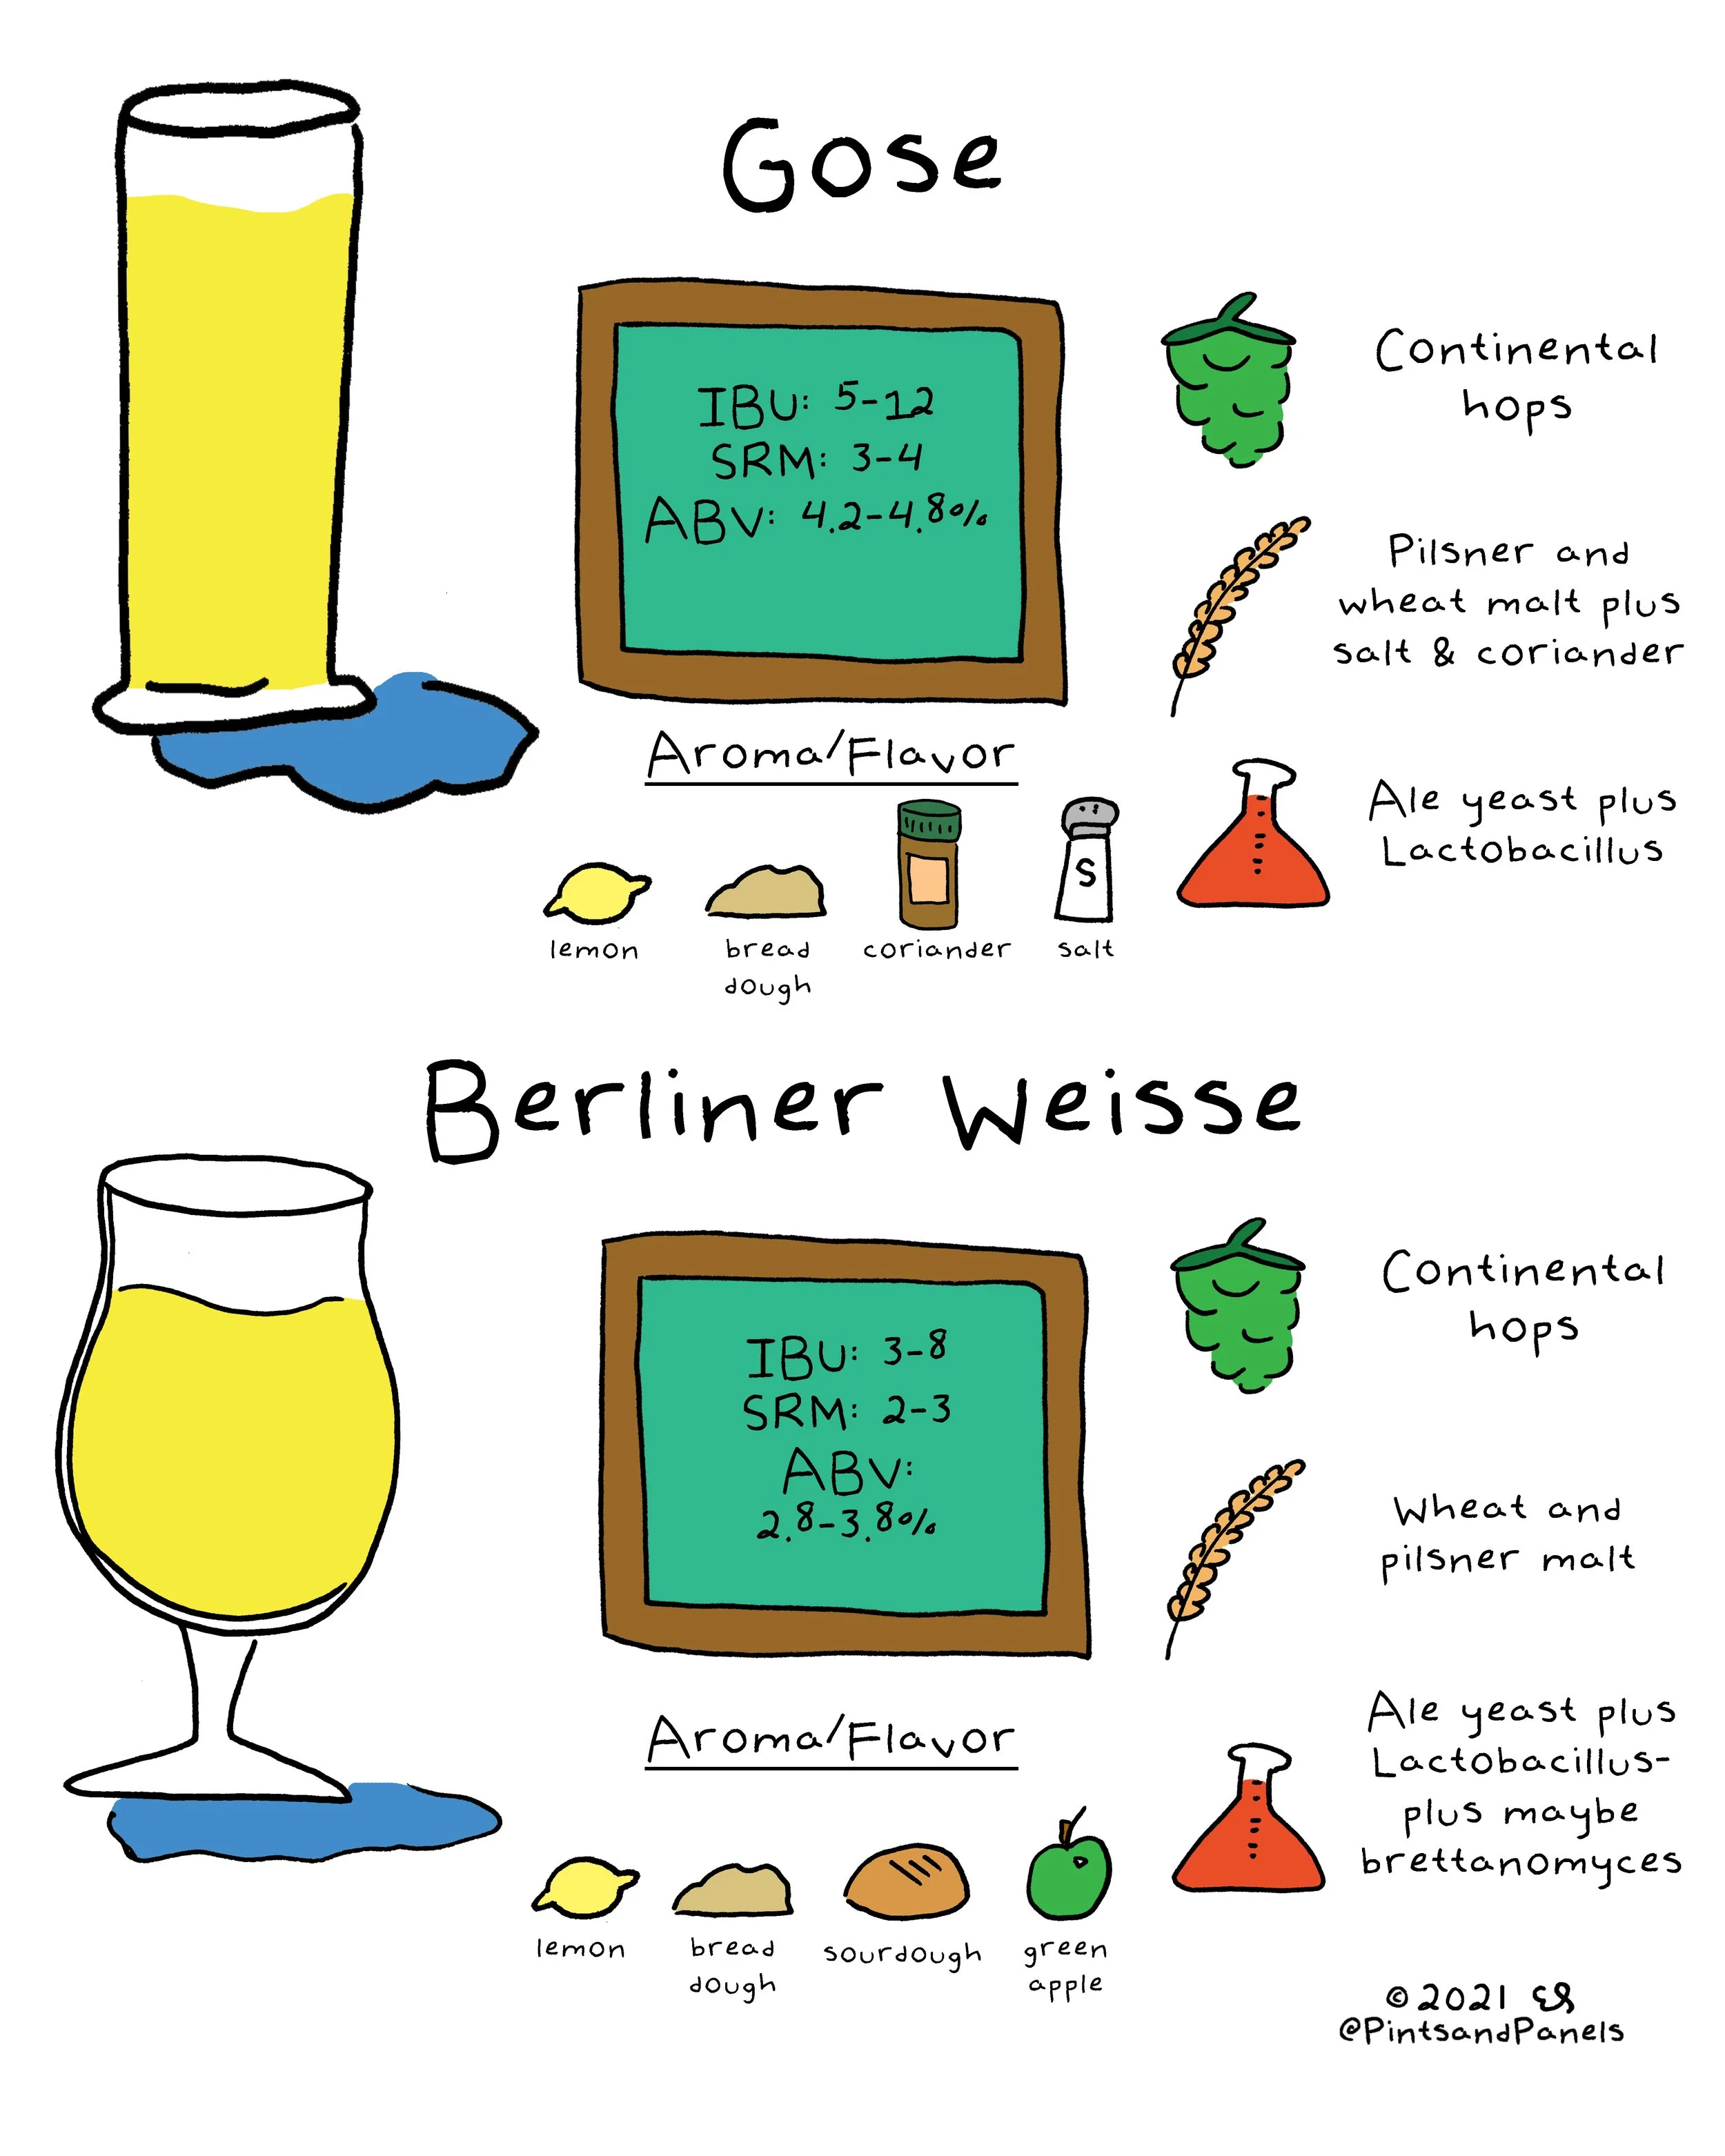 Gose
IBU: 5-12
SRM: 3-4
ABV: 4.2-4.8%
Continental
hops
Pilsner and
wheat malt plus
salt & coriander
Ale yeast plus
Lactobacillus
Aroma/Flavor
lemon
bread
dough
coriander
S
salt
Berliner Weisse
IBU: 3-8
SRM: 2-3
ABV:
2.8-3.8%
Continental
hops
Wheat and
pilsner malt
Ale yeast plus
Lactobacillus-
plus maybe
brettanomyces
Aroma/Flavor
lemon
bread
dough
sourdough
green
apple
©2021
@PintsandPanels